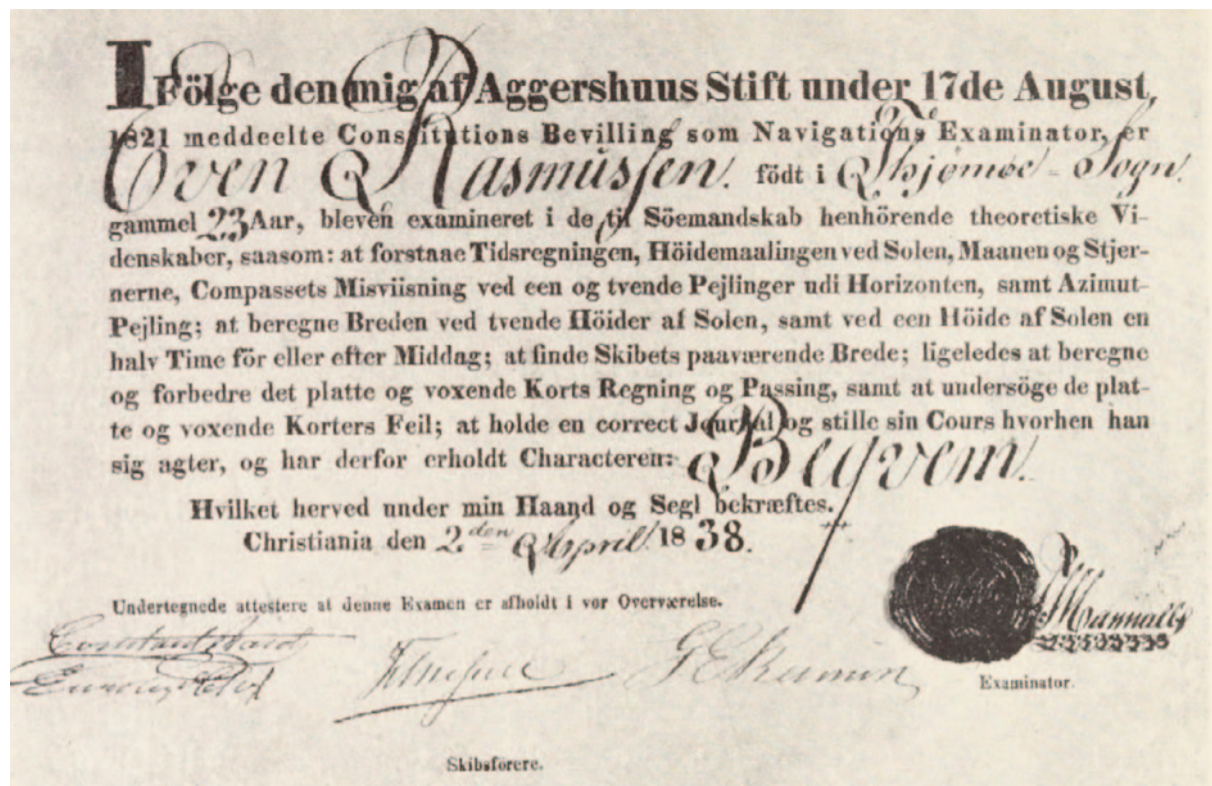 I Fölge den mig af Aggershuus Stift under 17de August,
1821 meddeelte Constitutions Bevilling som Navigations Examinator, er
Even Rasmussen. födt i Thjømøe - Sogn.
gammel 23 Aar, bleven examineret i de til Söemandskab henhörende theoretiske Vi-
denskaber, saasom: at forstaae Tidsregningen, Höidemaalingen ved Solen, Maanen og Stjer-
nerne, Compassets Misviisning ved een og tvende Pejlinger udi Horizonten, samt Azimut-
Pejling; at beregne Breden ved tvende Höider af Solen, samt ved een Höide af Solen en
halv Time för eller efter Middag; at finde Skibets paaværende Brede; ligeledes at beregne
og forbedre det platte og voxende Korts Regning og Passing, samt at undersöge de plat-
te og voxende Korters Feil; at holde en correct Jourjal og stille sin Cours hvorhen han
sig agter, og har derfor erholdt Characteren: Beqvem.
Hvilket herved under min Haand og Segl bekræftes.
Christiania den 2den April 1838.
Undertegnede attestere at denne Examen er afholdt i vor Overværelse.
Examinator.
Skibsförere.